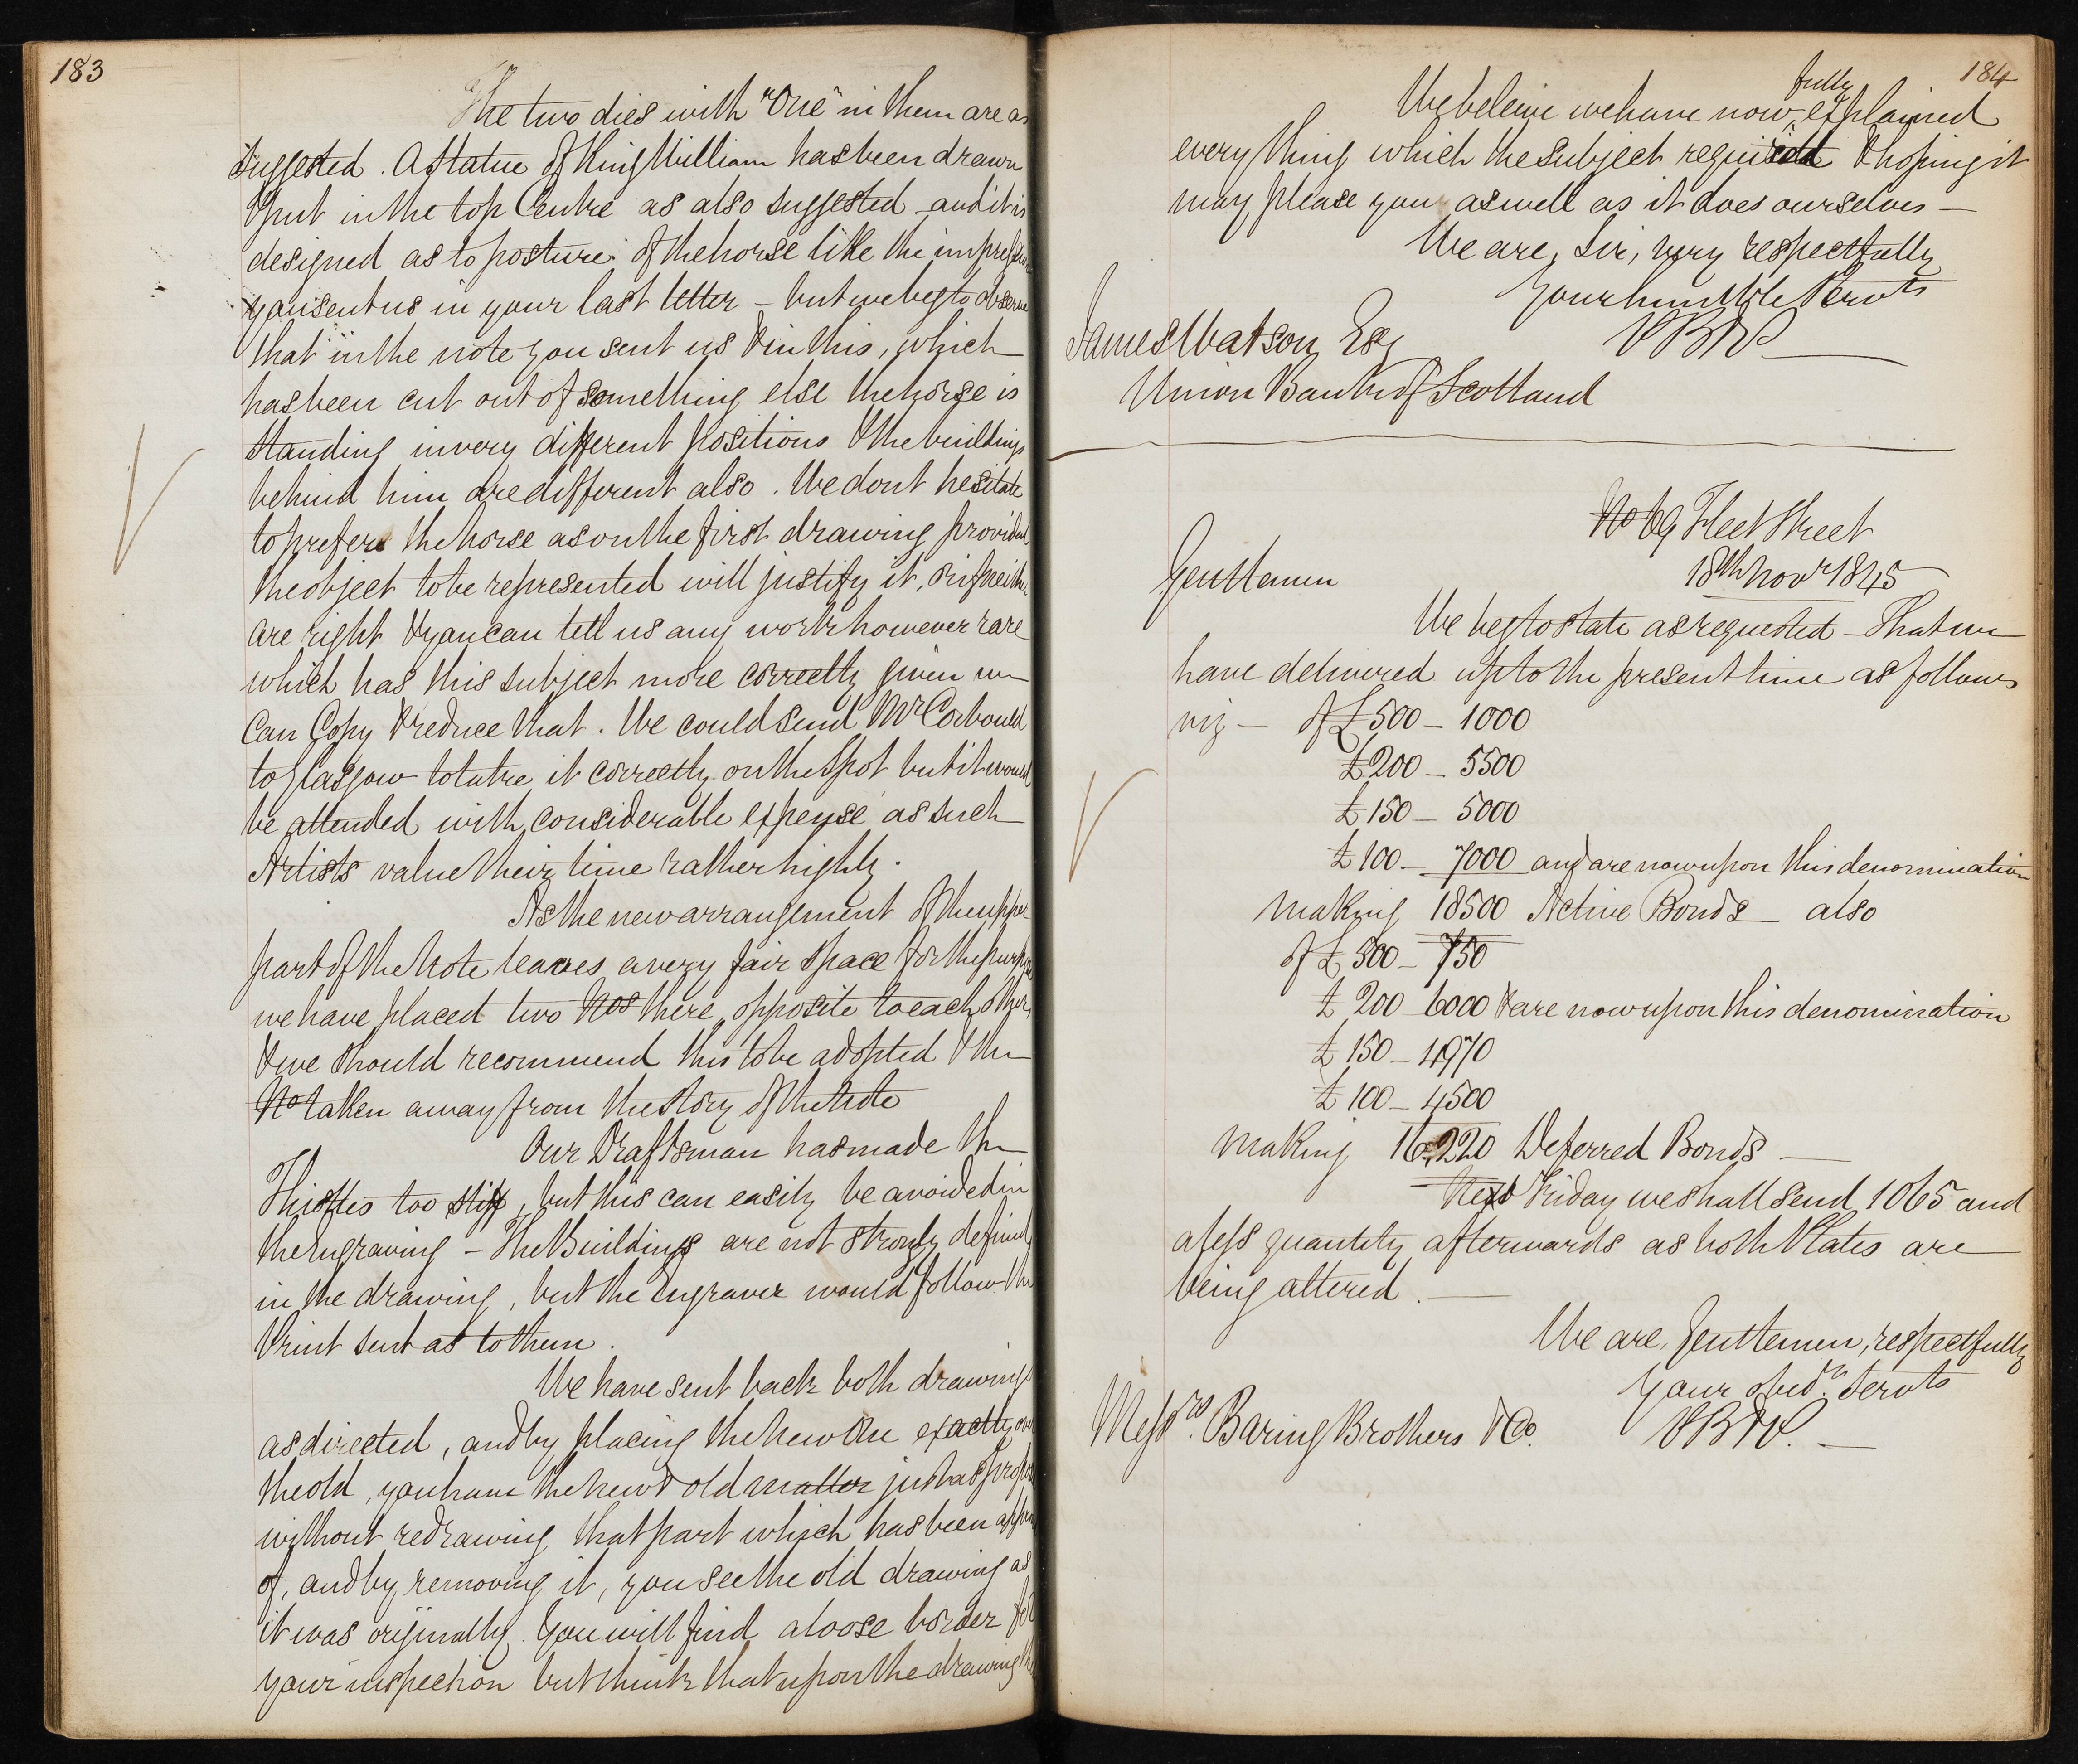 183
The two dies with "One" in them are as
suggested. A statue of King William has been drawn
& put in the top Centre as also suggested - and it is
designed as to posture of the horse like the impression
you sent us in your last letter - but we beg to observe
that in the note you sent us & in this, which
has been cut out of something else the horse is
standing in very different positions & the buildings
behind him are different also. We dont hesitate
to prefer the horse as on the first drawing provided
the object to be represented will justify it, or if neither
are right & you can tell us any work however rare
which has this subject more correctly given we
can Copy & reduce that. We could send Mr Corbould
to Glasgow to take it correctly on the Spot but it would
be attended with considerable expense as such
Artists value their time rather highly.
As the new arrangement of the upper
part of the Note leaves a very fair space for the purpose
we have placed two Nos there, opposite to each other,
& we should recommend this to be adopted & the
No taken away from the story of the Note
Our Draftsman has made the
Thistles too stiff, but this can easily be avoided in
the Engraving - The Buildings are not strongly defined
in the drawing, but the Engraver would follow the
Print sent as to them.
We have sent back both drawings
as directed, and by placing the New One exactly over
the old, you have the new & old matter just as proposed
without redrawing that part which has been approved
of, and by removing it, you see the old drawing as
it was originally. You will find a loose border for
your inspection but think that upon the drawing the
184
We beleive we have now fully explained
every thing which the subject required & hoping it
may please you as well as it does ourselves -
We are, Sir, very respectfully
Your humble Servts
PB&P.
James Watson Esq
Union Bank of Scotland
No 69 Fleet Street
18th Novr 1845
Gentlemen
We beg to state as requested - That we
have delivered up to the present time as follows
viz - of £500 - 1000
£200 - 5500
£150 - 5000
£100 - 7000 and are now upon this denomination
making 18500 Active Bonds - also
of £500 - 750
£200 6000 & are now upon this denomination
£150 - 4970
£100 - 4500
making 16,220 Deferred Bonds -
Next Friday we shall send 1065 and
a less quantity afterwards as both Plates are
being altered. -
We are, Gentlemen, respectfully
Your obedt Servts
Messrs. Baring Brothers & Co. PB&P. -